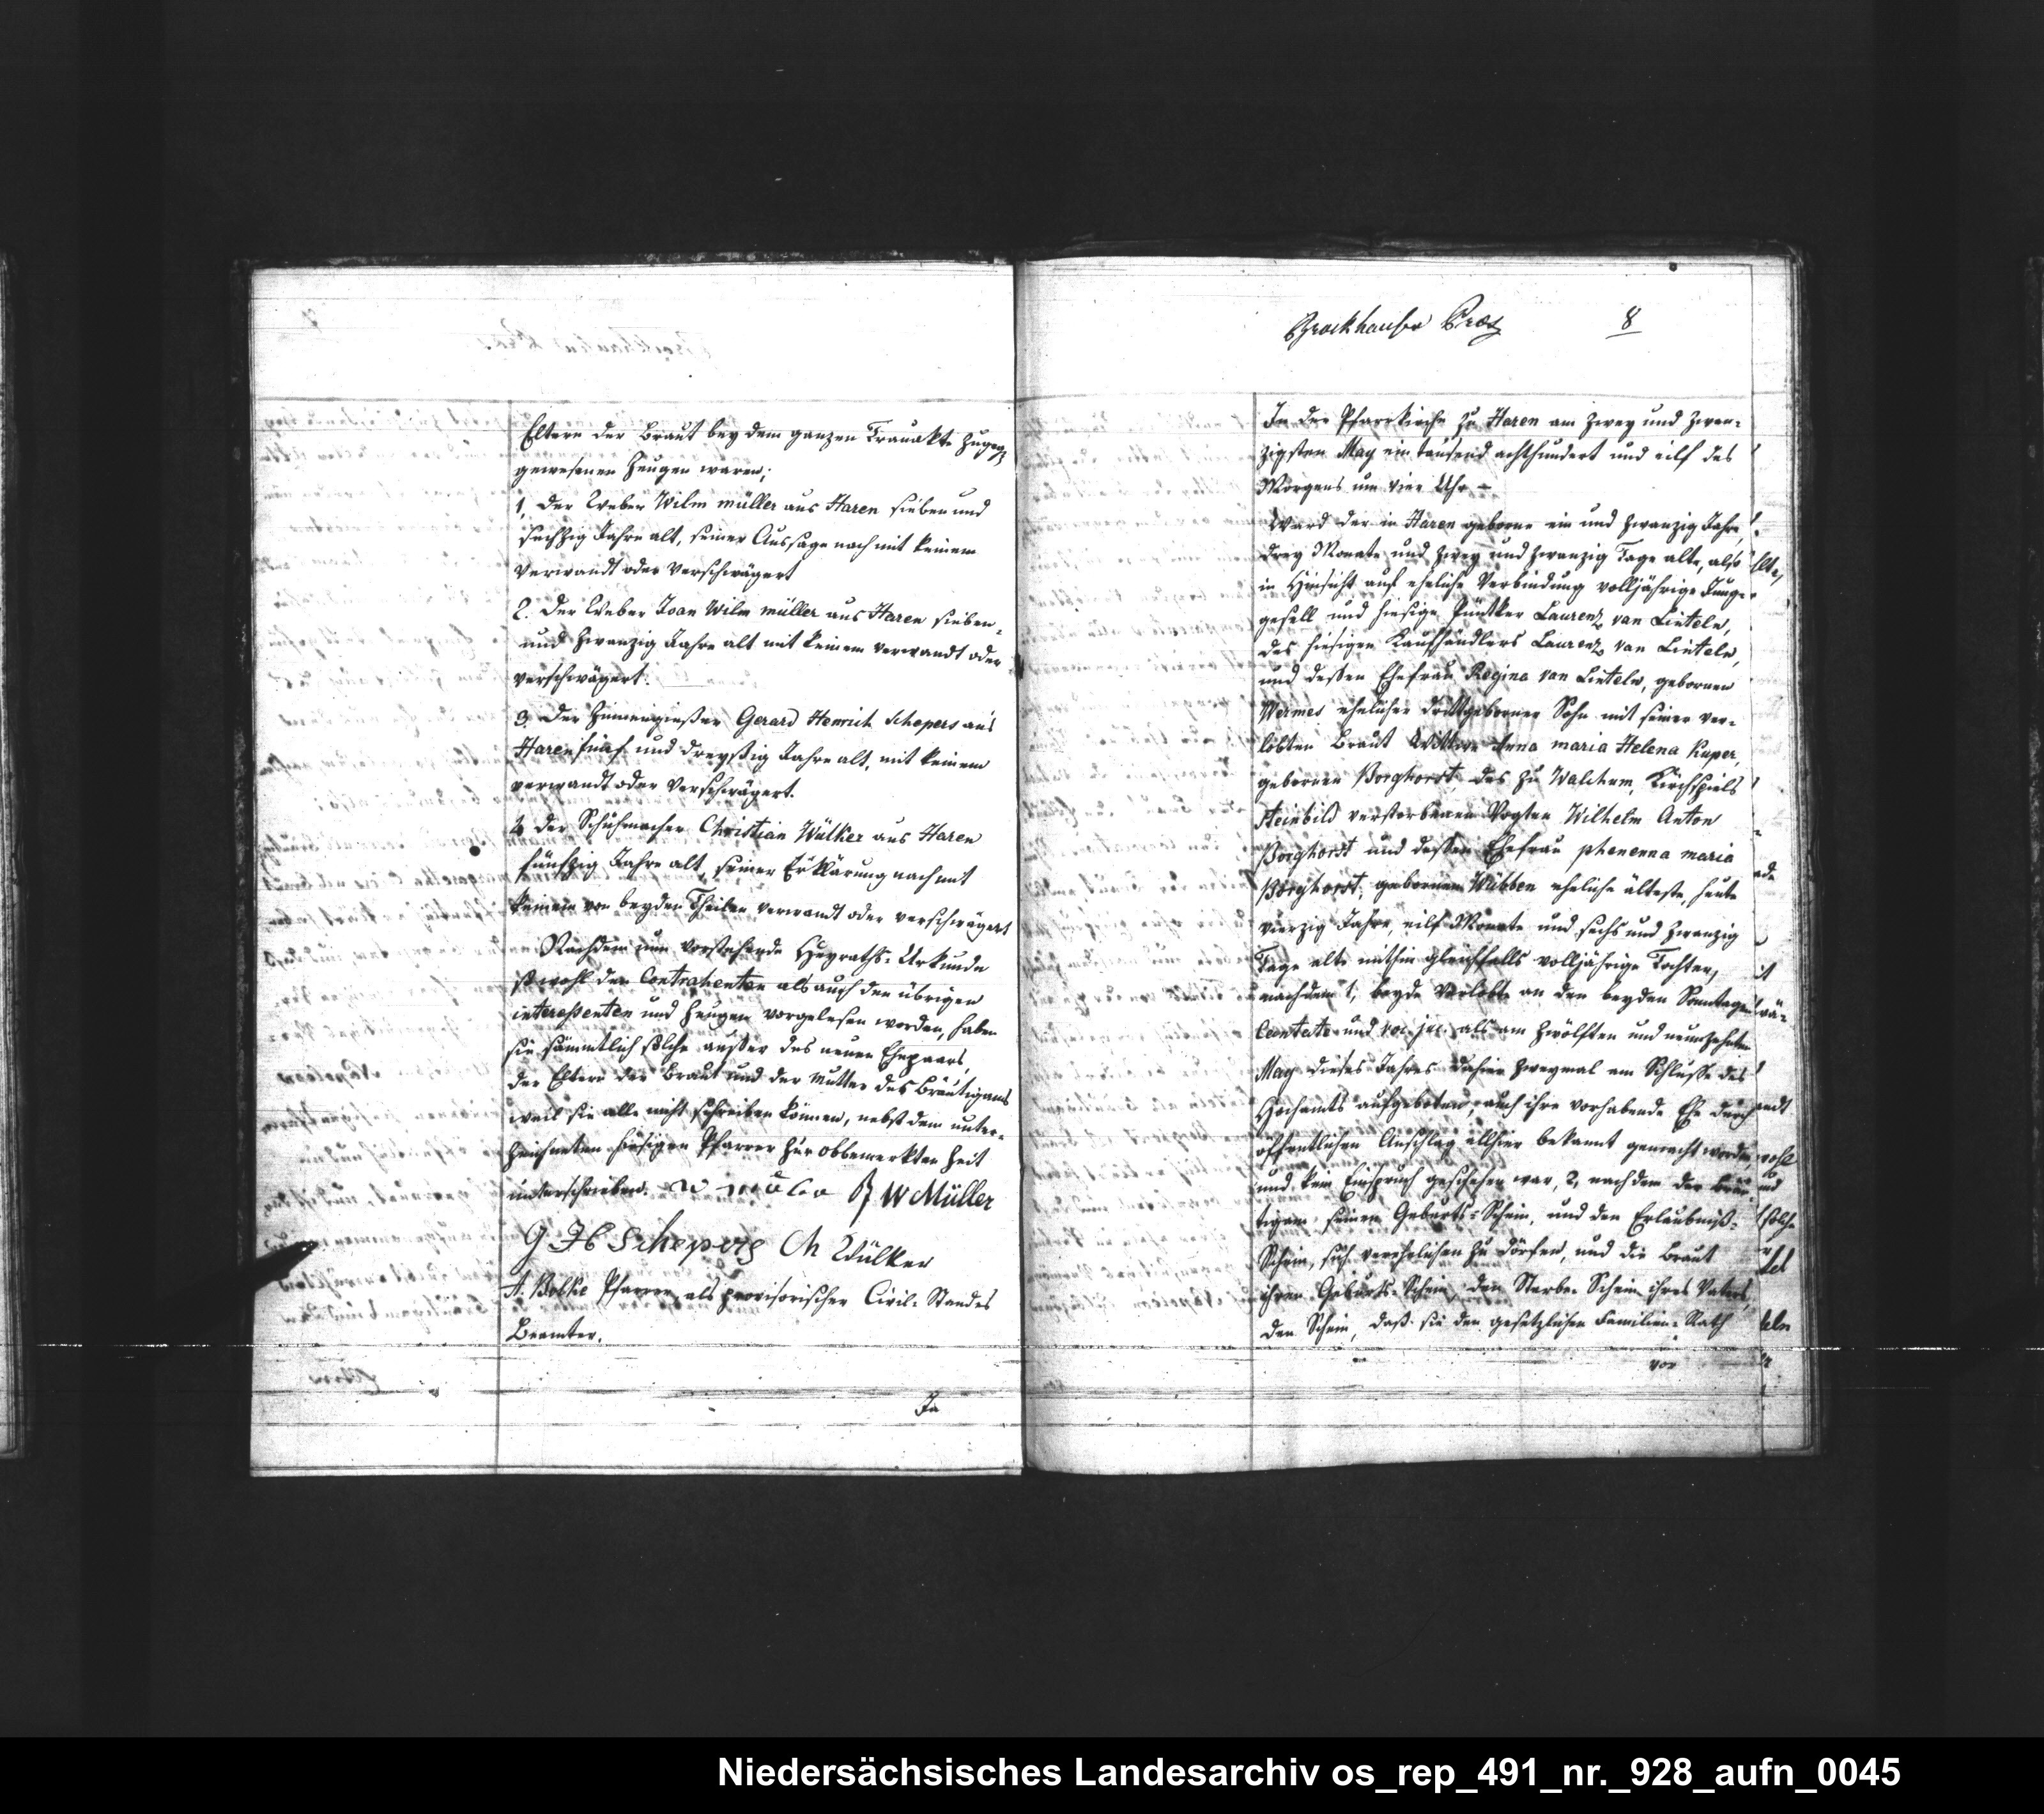 Eltern der Braut bey dem ganzen Trauakte zugegen
gewesenen Zeugen waren;
1, Der Weber Wilm müller aus Haren sieben und
sechzig Jahre alt, seiner Aussage nach mit keinem
verwandt oder verschwägert
2. Der Weber Joan Wilm müller aus Haren sieben-
und zwanzig Jahre alt mit keinem verwandt oder
verschwägert.
3. Der Zinnengießer Gerard Henrich Schepers aus
Haren fünf und dreyßig Jahre alt, mit keinem
verwandt oder verschwägert.
4 der Schuhmacher Christian Wülker aus Haren
fünfzig Jahre alt, seiner Erklärung nach mit
keinem von beyden Theilen verwandt oder verschwägert
Nachdem nun vorstehende Heyraths-Urkunde
so wohl den Contrahenten als auch den übrigen
interessenten und Zeugen vorgelesen worden, haben
sie sämmtlich solche ausser des neuen Ehepaars,
der Eltern der Braut und der Mutter des Bräutigams
weil sie alle nicht schreiben können, nebst dem unter-
zeichneten hiesigen Pfarrer zur obbemerkten Zeit
unterschrieben. W Müller J W Müller
G H Schepers Ch Wülker
A. Bolke Pfarrer, als provisorischer Civil-Standes
Beamter.
In
Brockhausen Præs 8
In der Pfarrkirche zu Haren am zwey und zwan-
zigsten May ein tausend achthundert und eilf des
Morgens um vier Uhr –
Ward der in Haren geborne ein und zwanzig Jahre,
drey Monate und zwey und zwanzig Tage alte, also
in Hinsicht auf eheliche Verbindung volljährige Jung-
gesell und hiesige Püntker Laurenz van Linteln,
des hiesigen Kaufhändlers Laurenz van Linteln,
und dessen Ehefrau Regina van Linteln, gebornen
Wermes ehelicher drittgeborner Sohn mit seiner ver-
lobten Braut Wittwe Anna maria Helena Kuper,
gebornen Borghorst, des zu Walchum, Kirchspiels
Steinbild verstorbenen Vogten Wilhelm Anton
Borghorst und dessen Ehefrau phenenna maria
Borghorst, gebornen Wübben eheliche älteste, heute
vierzig Jahre, eilf Monate und sechs und zwanzig
Tage alte mithin gleichfalls volljährige Tochter,
nachdem 1, beyde Verlobte an den beyden Sonntagen
Cantate und voc. juc. als am zwölften und neunzehnten
May dieses Jahres dahier zweymal am Schlusse des
Hochamts aufgeboten, auch ihre vorhabende Ehe durch
öffentlichen Anschlag allhier bekannt gemacht worden,
und kein Einspruch geschehen war, 2, nachdem der Bräu-
tigam seinen Geburts-Schein, und den Erlaubniß-
Schein, sich verehelichen zu dörfen, und die Braut
ihren Geburts-Schein, den Sterbe-Schein ihres Vaters,
den Schein, daß sie den gesetzlichen Familien-Rath
vor
Niedersächsisches Landesarchiv os_rep_491_nr._928_aufn_0045